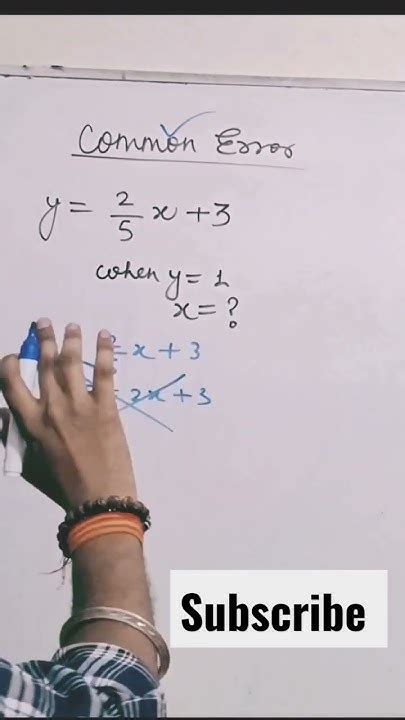 Common Error
y = 2/5 x + 3
when y = 1
x = ?
x + 3
2x + 3
Subscribe